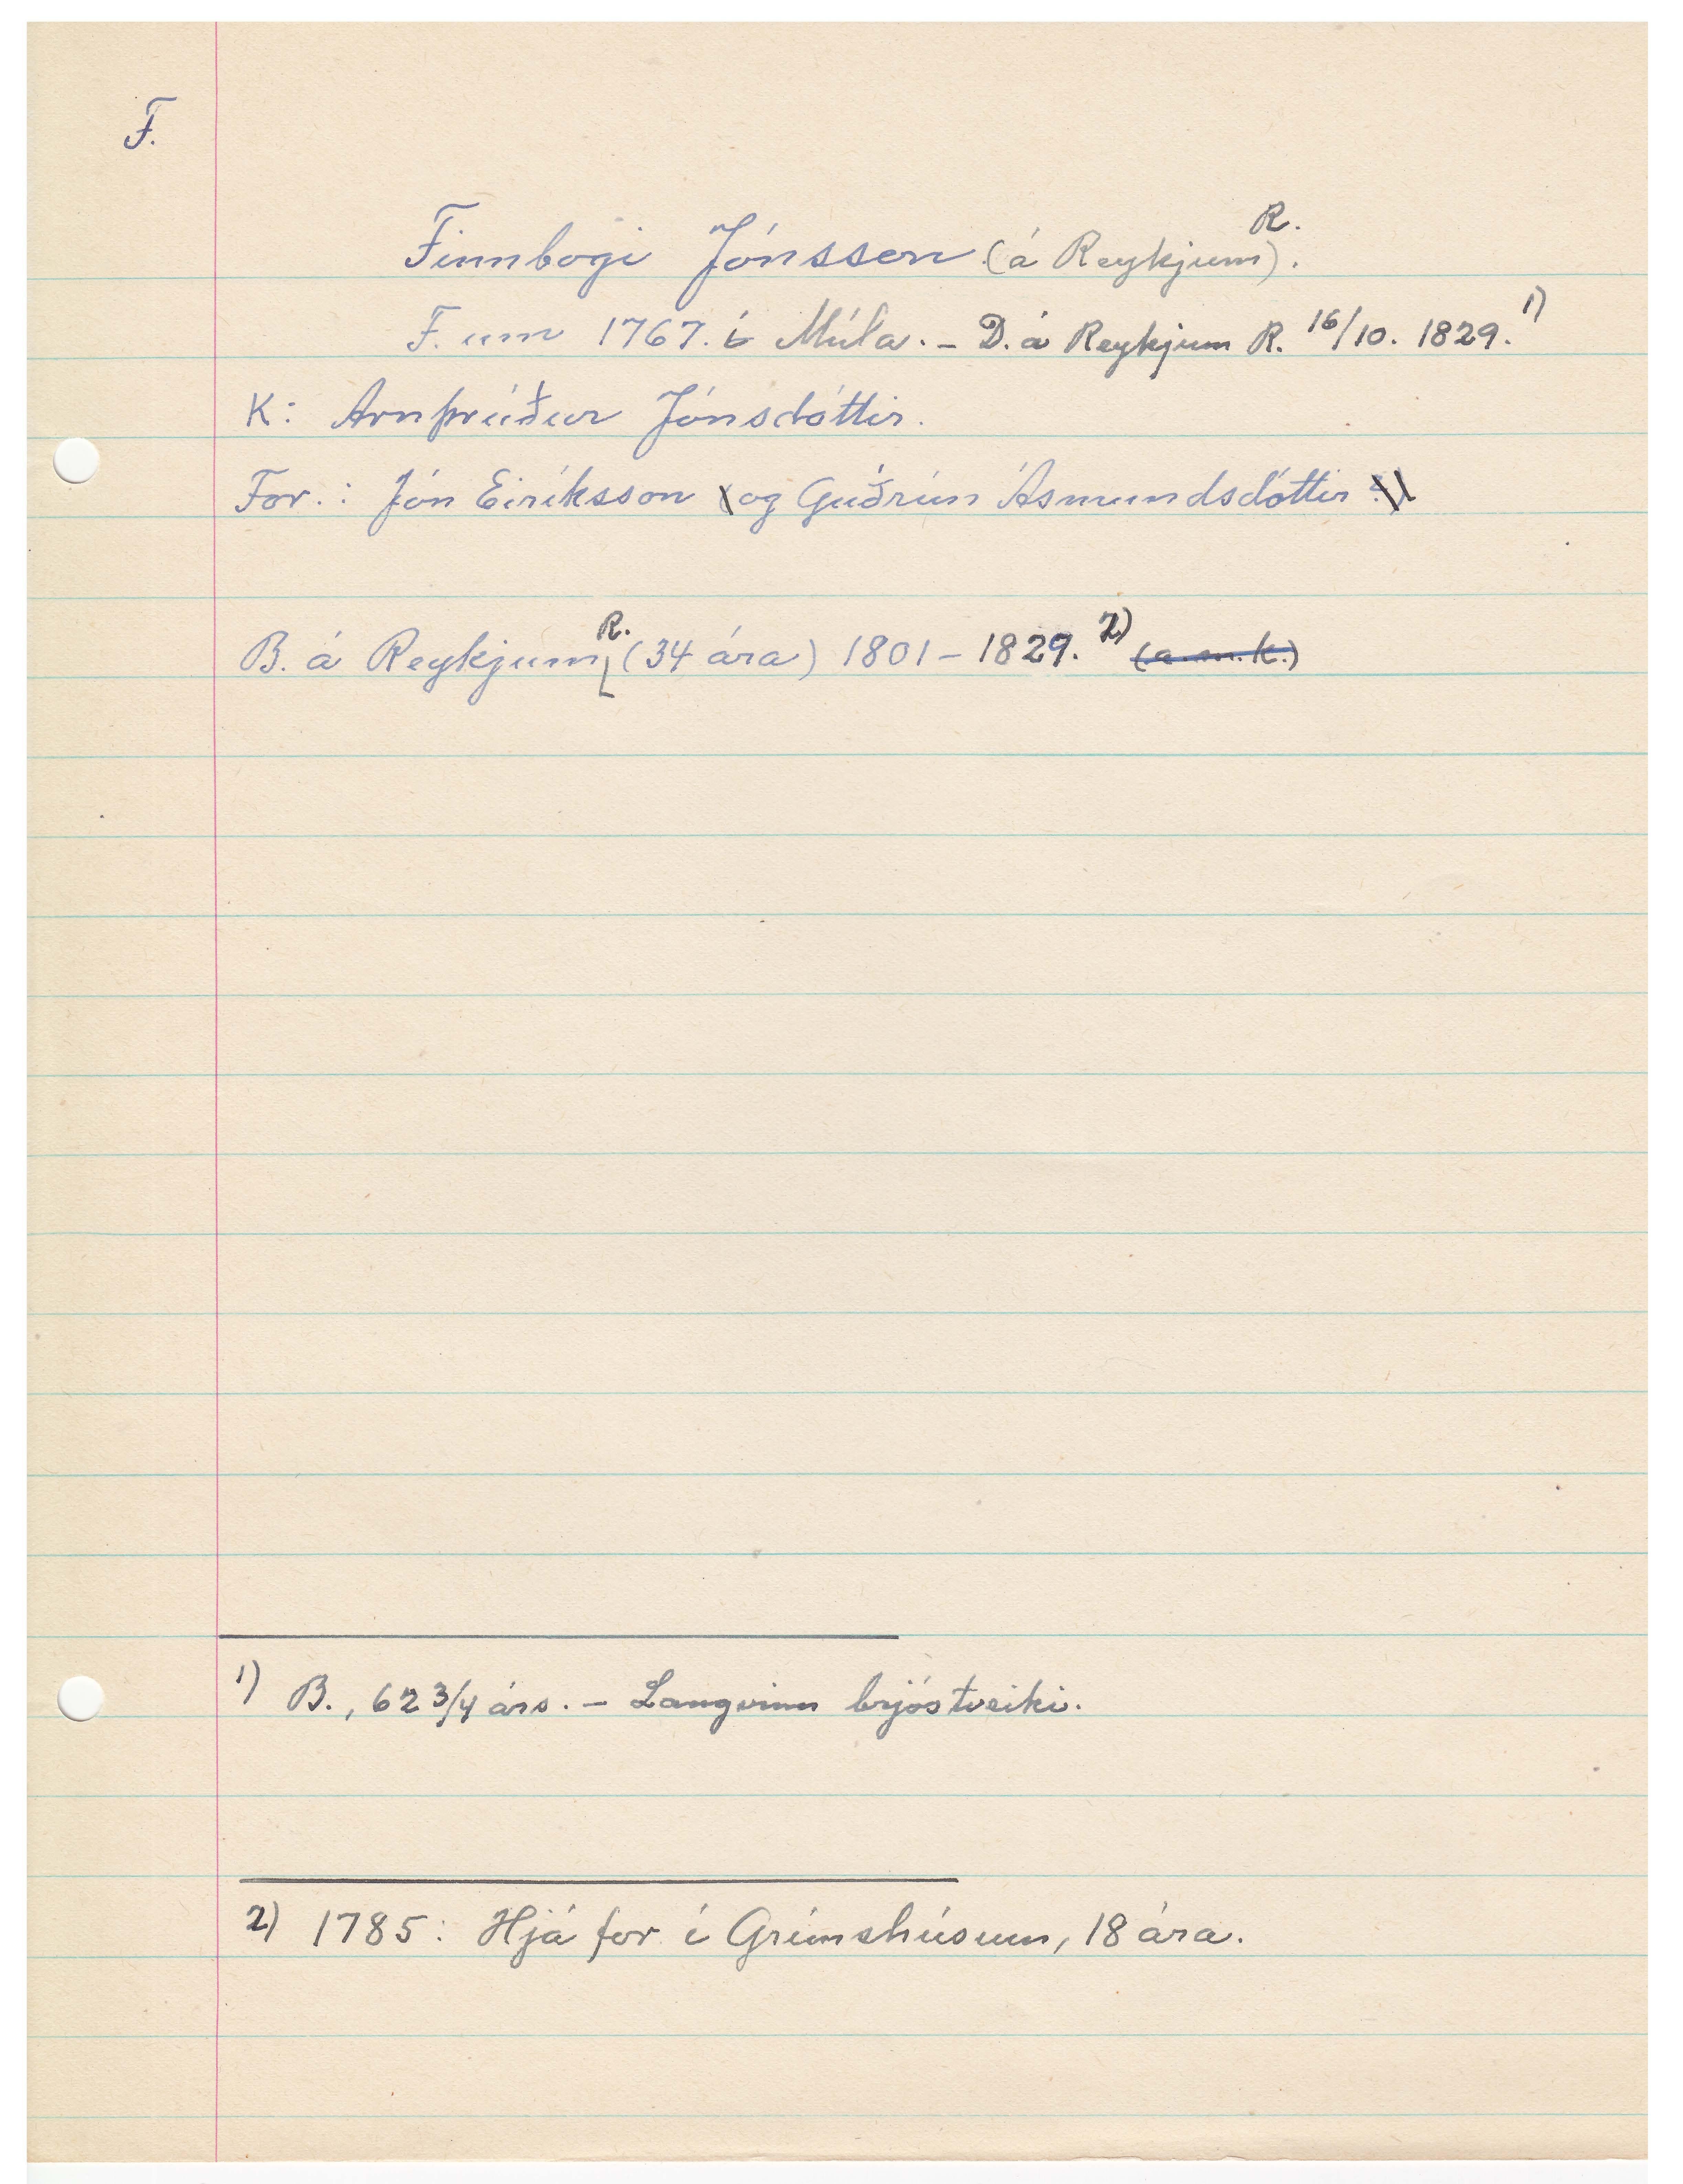 F.
Finnbogi Jónsson (á Reykjum R.).
F. um 1767. í Múla. - D. á Reykjum R. 16/10. 1829. 1)
K: Arnþrúður Jónsdóttir.
For.: Jón Eiríksson og Guðrún Ásmundsdóttir
B. á Reykjum R. (34 ára) 1801 - 1829. 2) (a.m.k.)
1) B., 62 3/4 árs. - Langvinn brjóstveiki.
2) 1785: Hjá for. í Grímshúsum, 18 ára.